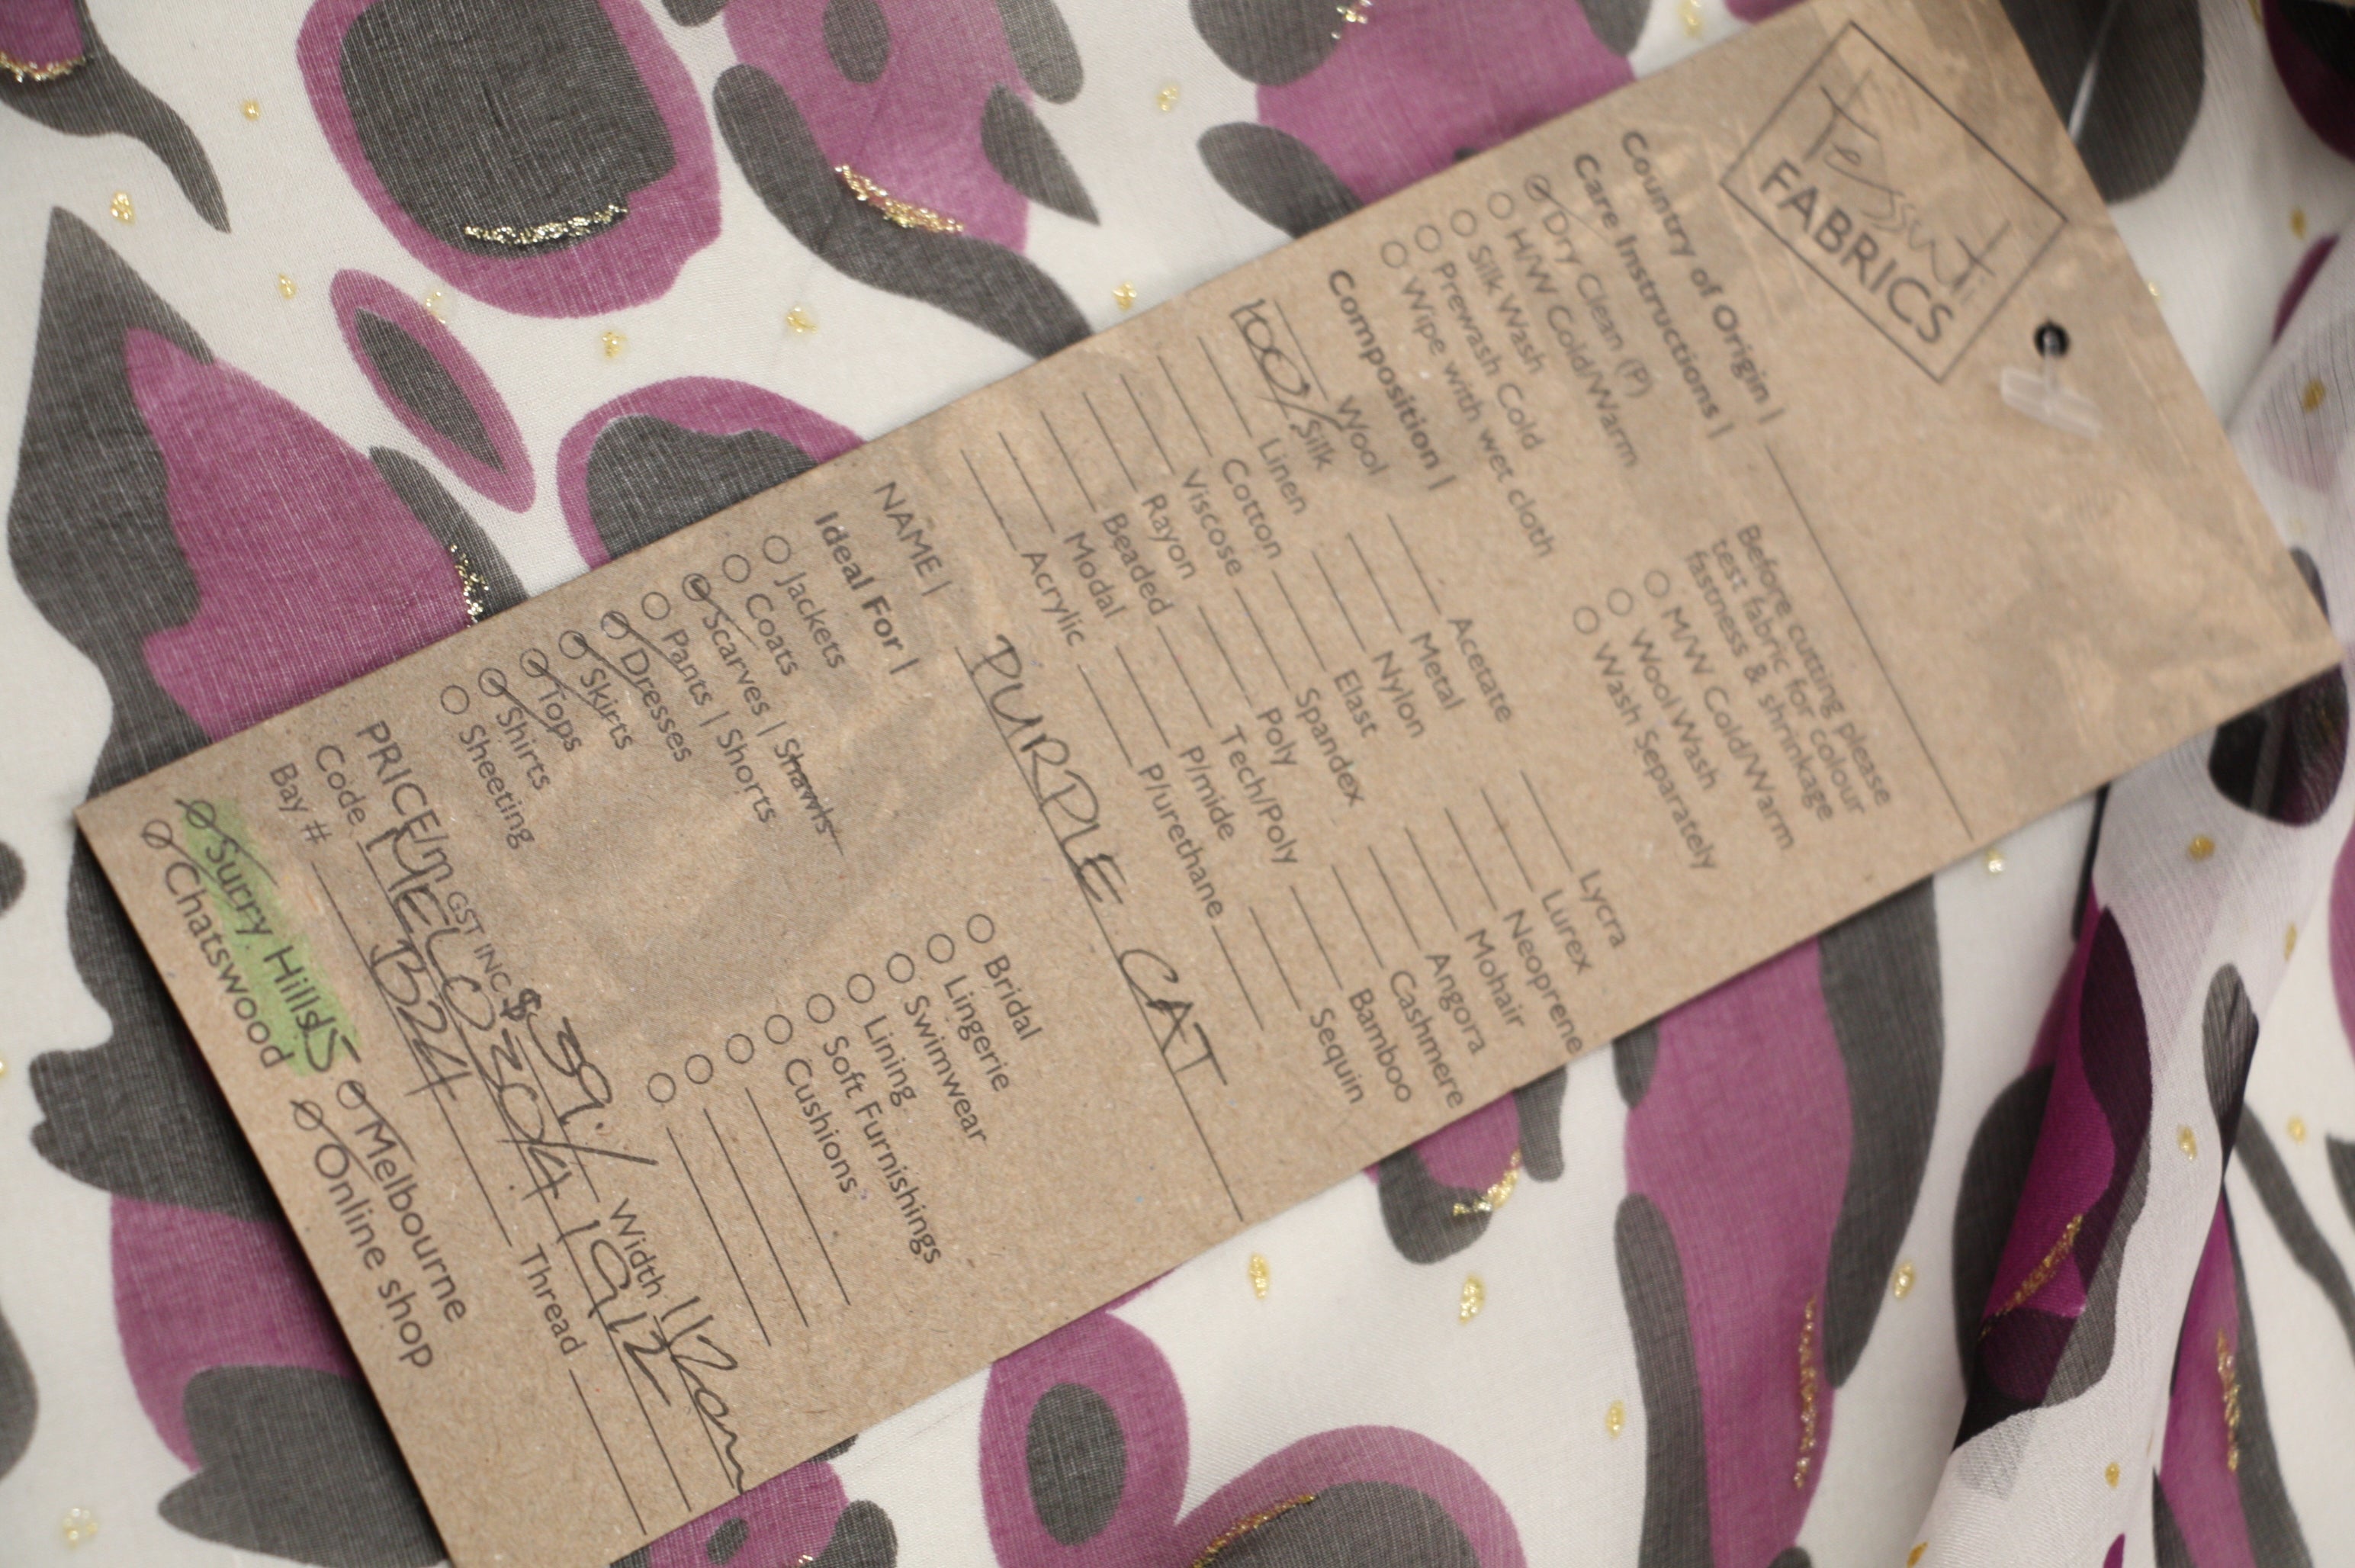 Tessuti
FABRICS
Country of Origin |
Care Instructions |
Before cutting please
test fabric for colour
fastness & shrinkage
Dry Clean (P)
H/W Cold/Warm
Silk Wash
Prewash Cold
Wipe with wet cloth
M/W Cold/Warm
Wool Wash
Wash Separately
Composition |
Wool Acetate Lycra
100/ Silk Metal Lurex
Linen Nylon Neoprene
Cotton Elast Mohair
Viscose Spandex Angora
Rayon Poly Cashmere
Beaded Tech/Poly Bamboo
Modal P/mide Sequin
Acrylic P/urethane
NAME | PURPLE CAT
Ideal For |
Jackets Bridal
Coats Lingerie
Scarves | Shawls Swimwear
Pants | Shorts Lining
Dresses Soft Furnishings
Skirts Cushions
Tops
Shirts
Sheeting
PRICE/m GST INC $ 39./ Width
Code
Bay # B24 Thread
Surry Hills Melbourne
Chatswood Online shop